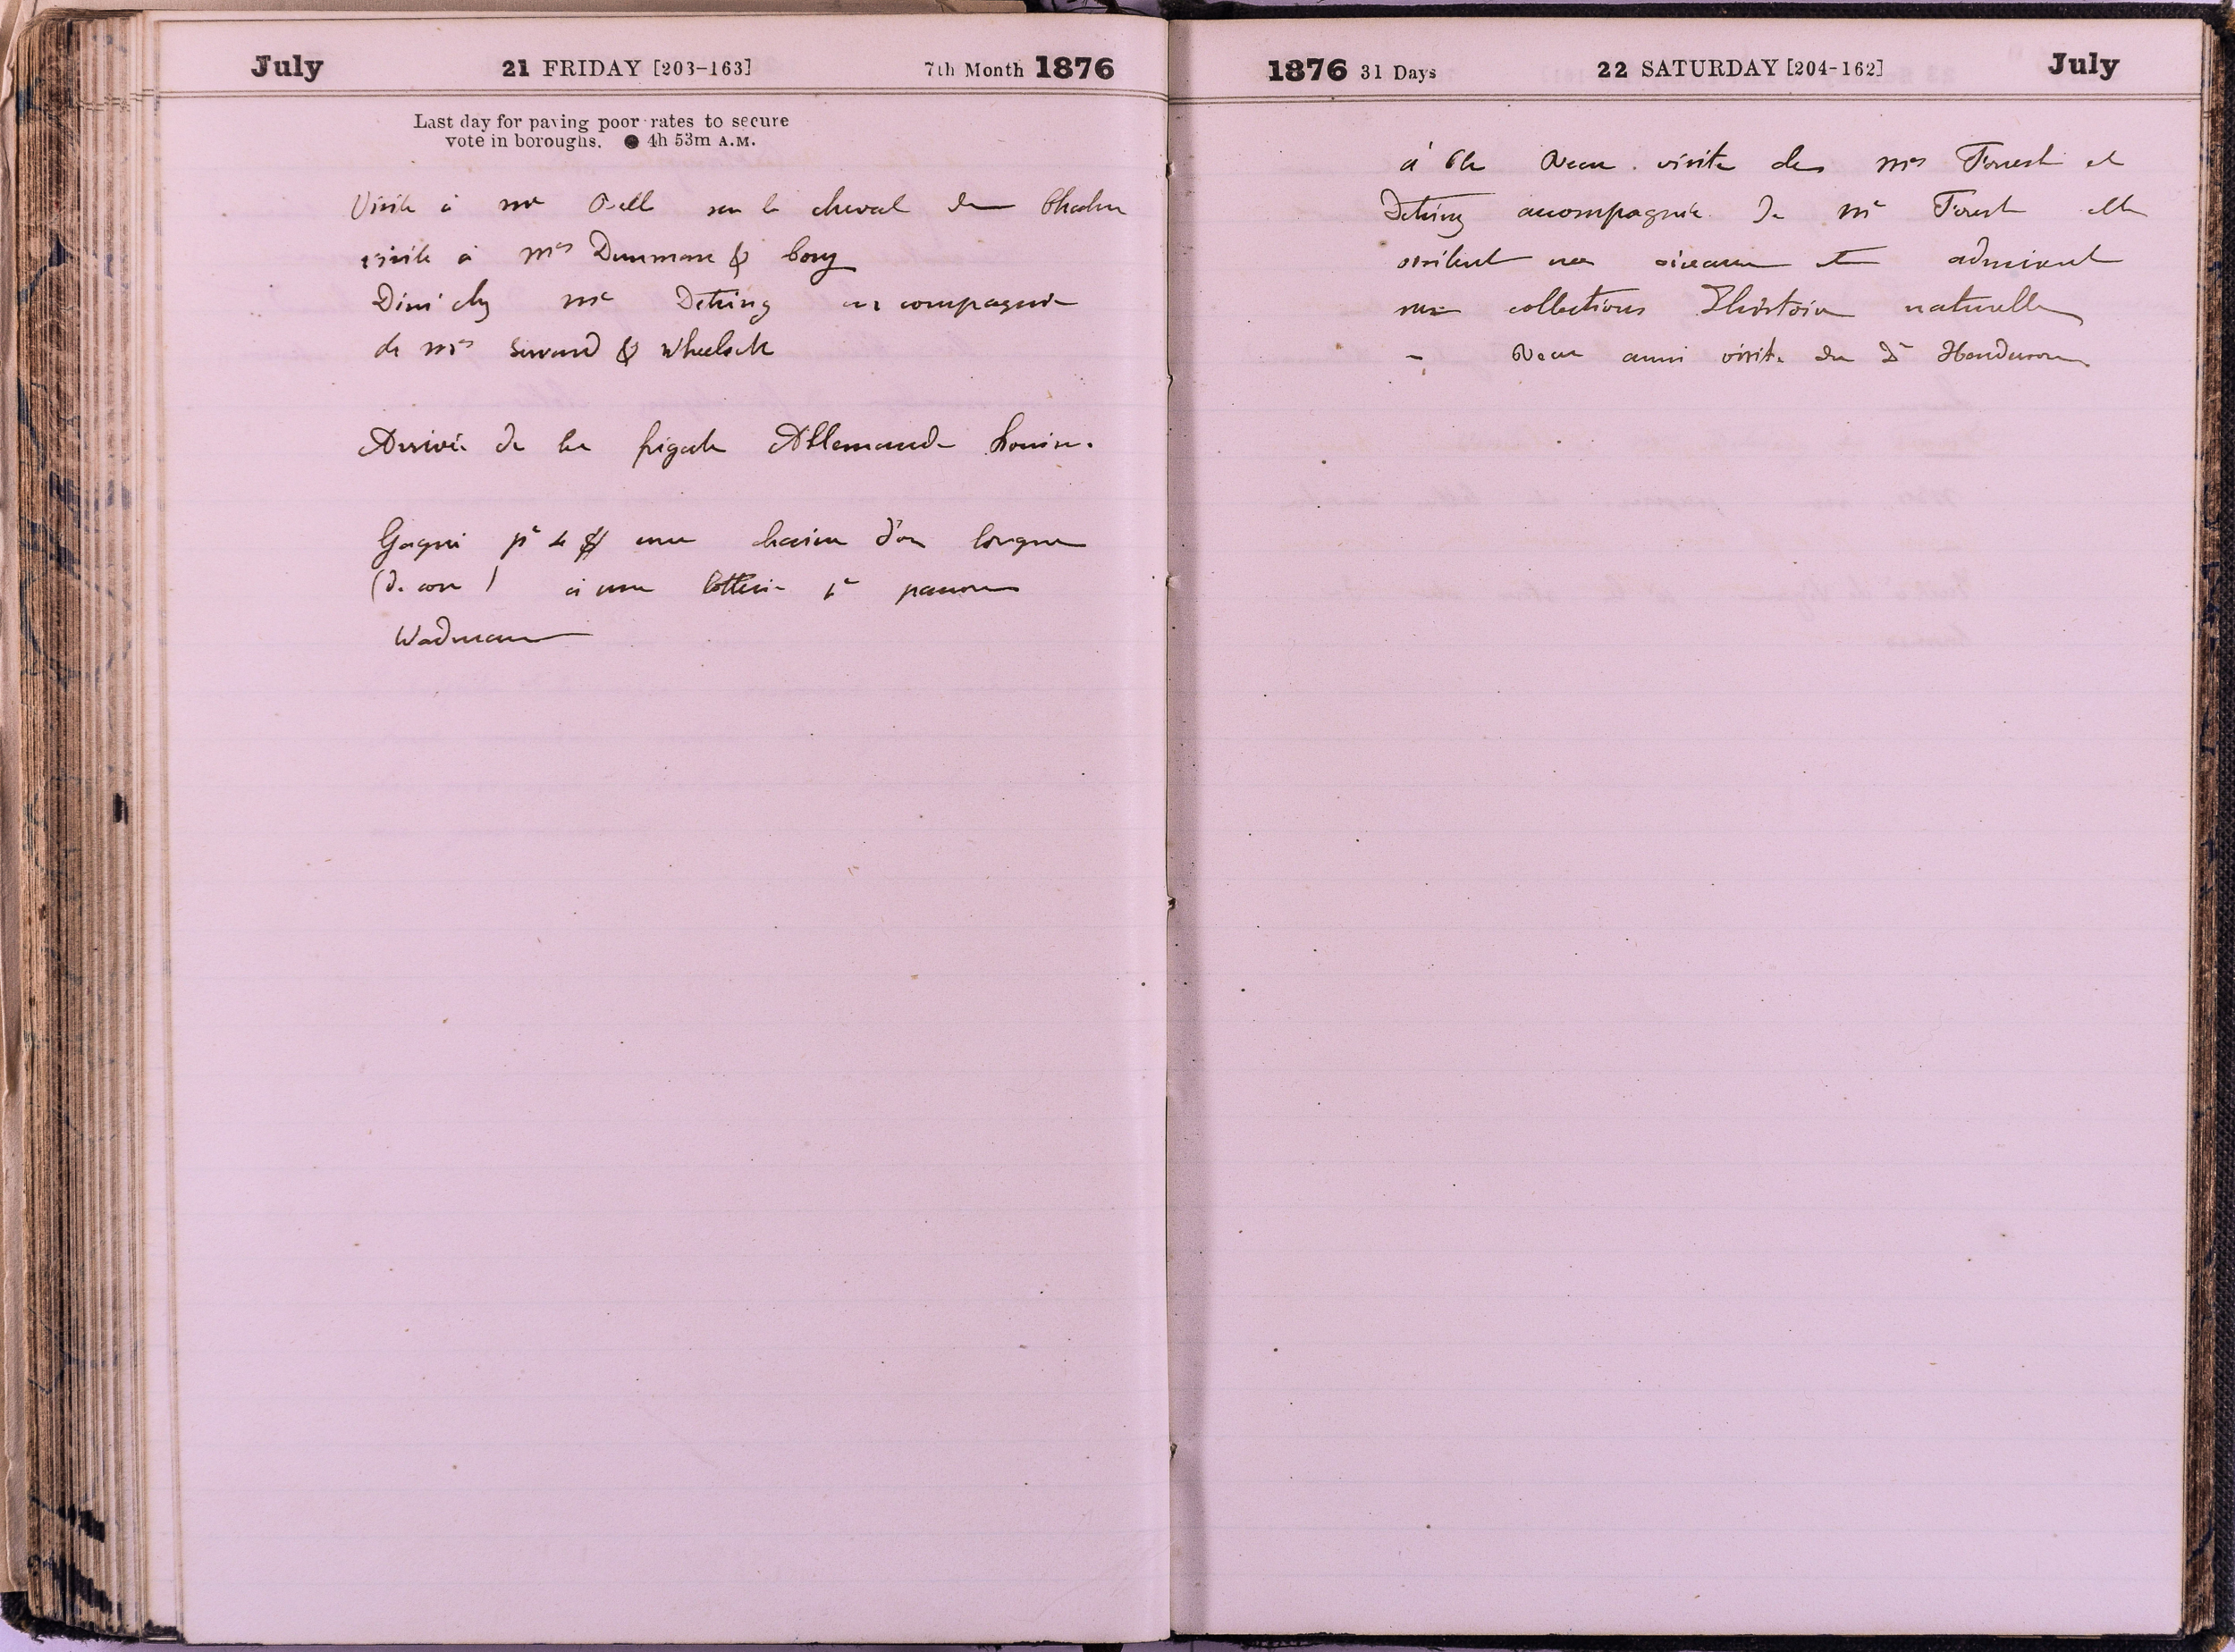 July 21 FRIDAY [203-163] 7th Month 1876
Last day for paying poor rates to secure
vote in boroughs. ● 4h 53m A.M.
Visite à Mr Bell sur le cheval de
visite à Mrs Dunmore &
Diné chez Mr Detring en compagnie
de Mrs Seward & Wheelock
Arrivée de la frégate Allemande
Gagné pr 4 $ une chaine d'or longue
(de cou) à une lotterie pr pauvre
Wadman
1876 31 Days 22 SATURDAY [204-162] July
à 6h Reçu visite des Mrs Forrest et
Detring accompagnée de Mr Forest elle
visitent nos oiseaux et admirent
mes collections d'histoire naturelle
- Reçu aussi visite du Dr Henderson